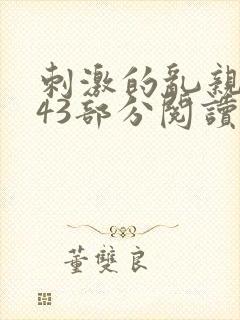 刺激的亂親
43部分閱讀
董雙良